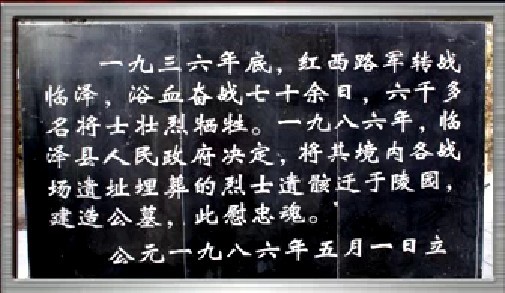 一九三六年底，红西路军转战
临泽，浴血奋战七十余日，六千多
名将士壮烈牺牲。一九八六年，临
泽县人民政府决定，将其境内各战
场遗址埋葬的烈士遗骸迁于陵园，
建造公墓，此慰忠魂。
公元一九八六年五月一日立